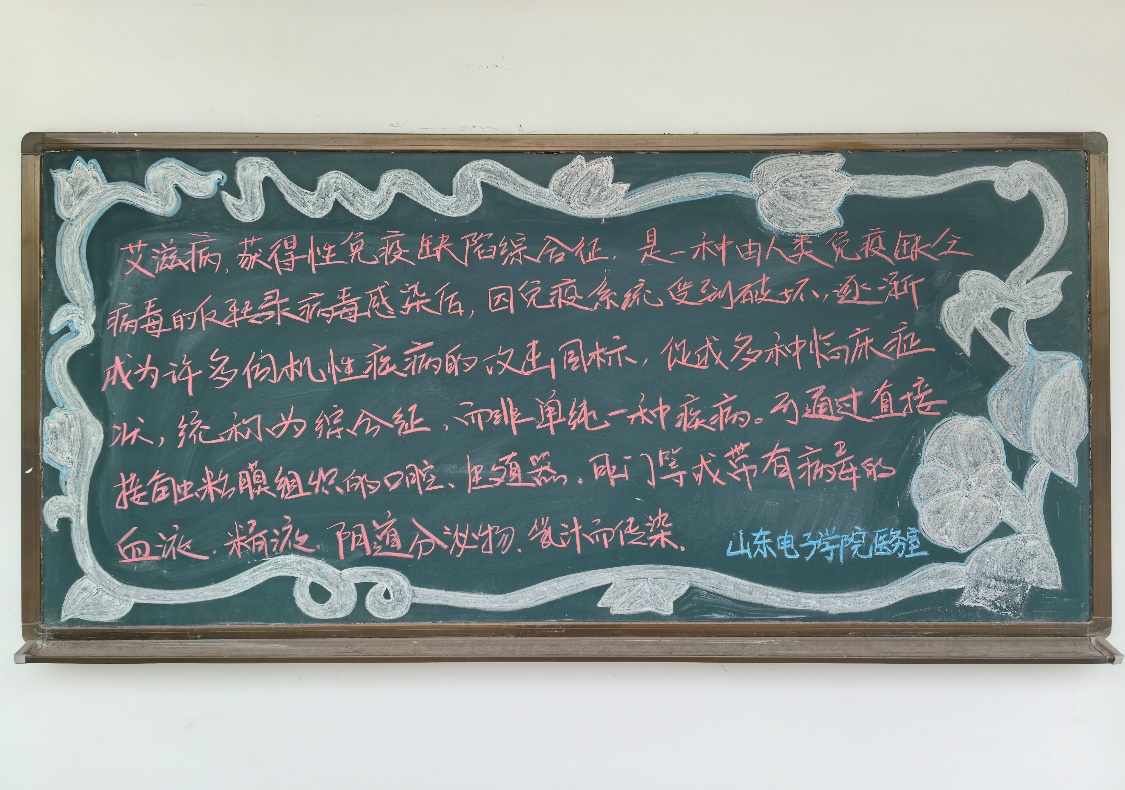 艾滋病,获得性免疫缺陷综合征,是一种由人类免疫缺乏
病毒的反转录病毒感染后,因免疫系统受到破坏,逐渐
成为许多伺机性疾病的攻击目标,促成多种临床症
状,统称为综合征,而非单纯一种疾病。可通过直接
接触粘膜组织的口腔、生殖器、肛门等或带有病毒的
血液、精液、阴道分泌物、乳汁而传染.
山东电子学院医务室